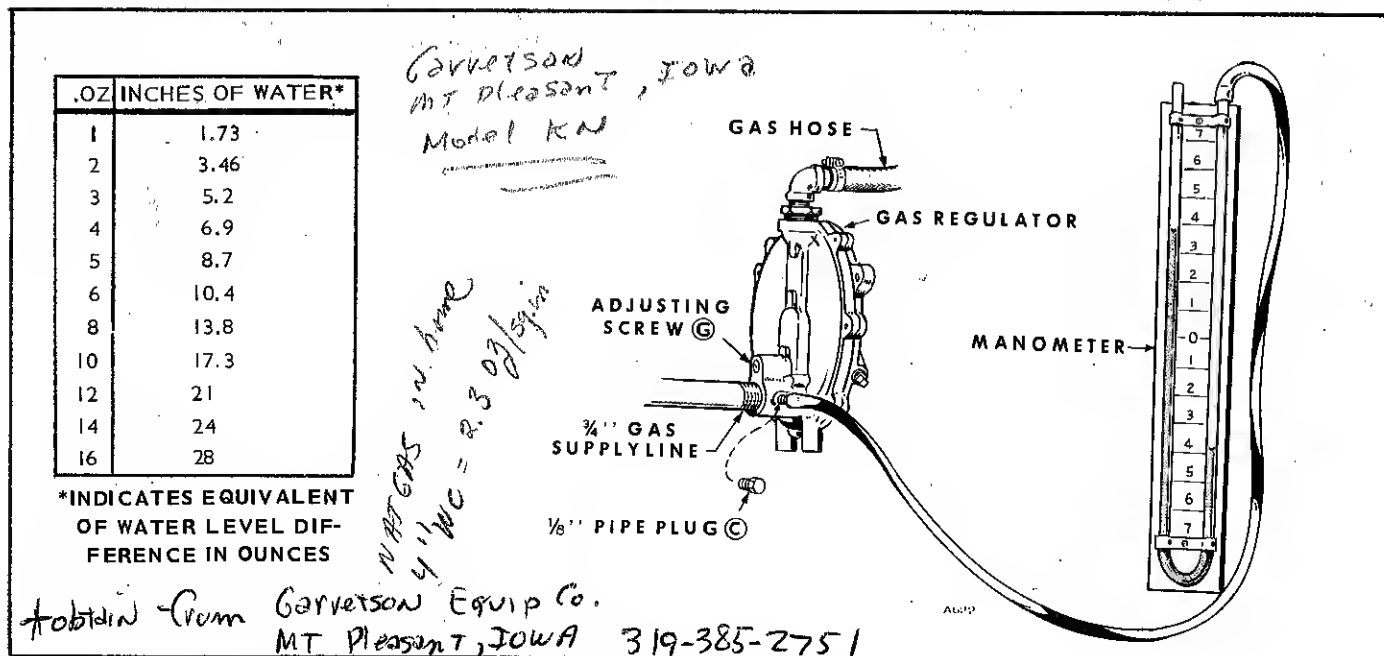 .OZ INCHES OF WATER*
1 1.73
2 3.46
3 5.2
4 6.9
5 8.7
6 10.4
8 13.8
10 17.3
12 21
14 24
16 28
*INDICATES EQUIVALENT
OF WATER LEVEL DIF-
FERENCE IN OUNCES
Garretson
MT Pleasant, Iowa
Model KN
NAT GAS IN home
4" WC = 2.3 oz/sq in
GAS HOSE
GAS REGULATOR
ADJUSTING
SCREW G
¾'' GAS
SUPPLYLINE
⅛'' PIPE PLUG C
MANOMETER
7
6
5
4
3
2
1
0
1
2
3
4
5
6
7
obtain from Garretson Equip Co.
MT Pleasant, IOWA 319-385-2751